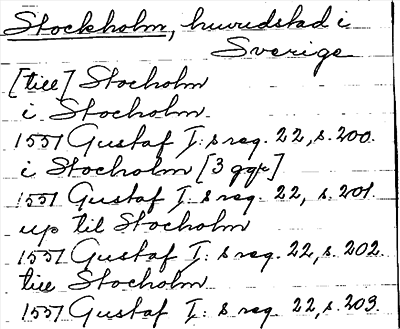 Stockholm, huvudstad i
Sverige
[till] Stocholm
i Stocholm
1551 Gustaf I:s reg. 22, s. 200.
i Stocholm [3 ggr]
1551 Gustaf I:s reg. 22, s. 201.
up til Stocholm
1551 Gustaf I:s reg. 22, s. 202.
till Stocholm
1551 Gustaf I:s reg. 22, s. 203.